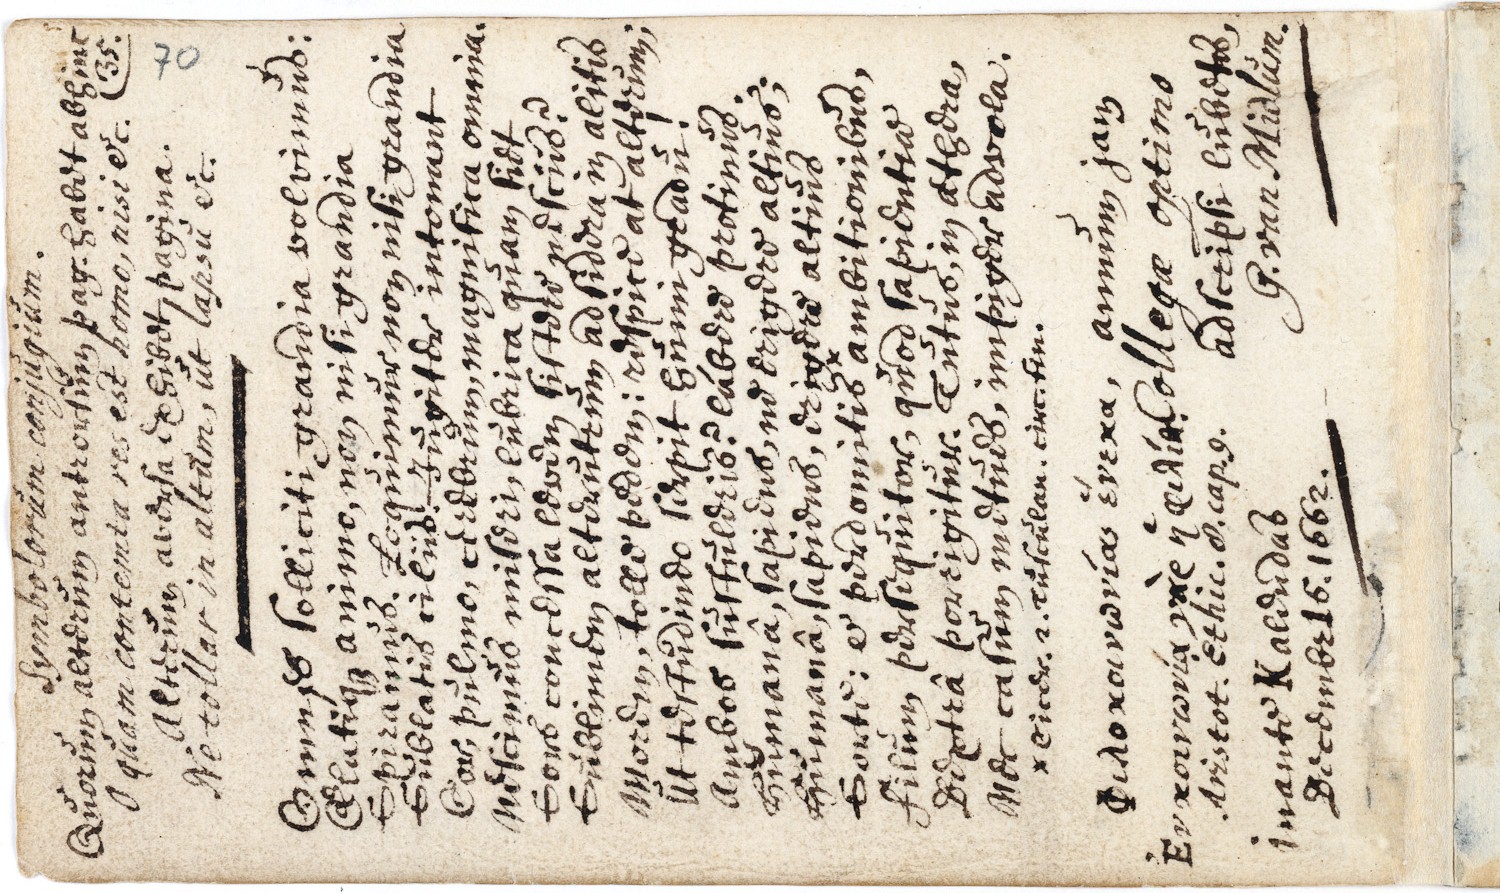 Symbolorum conjugium.
Quorum alterum antrorsum pag. habet abhinc
O quam contemta res est homo, nisi &c. 35.
Alterum aversa exhibet pagina.
70
Ne tollar in altum, ut lapsu &c.
Omnes solliciti grandia volvimus:
Elatiq₃ animo, non nisi grandia
Spiramus. Loquimur non nisi grandia
Sublatis ciliis: Jugiter intonant
Cor, pulmo, cerebrum, magnifica omnia.
Nescimus miseri, lubrica quam siet
Sors concessa levem sistere nesciis?
Sublimem alterutrum ad sidera in alitis
Morem, tolle pedem: respice at alterum;
Ut testudineo serpit humi gradu!
Ambos sustuleris? lábere protinus.
Humanâ, sapiens, ne erigere altius;
Humanâ, sapiens, erigere altius
Sorte: & perdomitis ˣ ambitionibus,
Filum persequitor, quod sapientiæ
Dextrâ porrigitur. Tutus, in æthera,
Nec casum metues, impiger advola.
x Cicer. 2. Tusculan. circ. fin.
Φιλοκοινωνίας ἕνεκα, annum jam
Ἐν κοινωνίᾳ γὰρ ἡ φιλία. Collegæ optimo
Aristot. Ethic. 8. cap. 9. adscripsi lubens,
in ante Kalendas G. van Midlum.
Decembr 16. 1662.